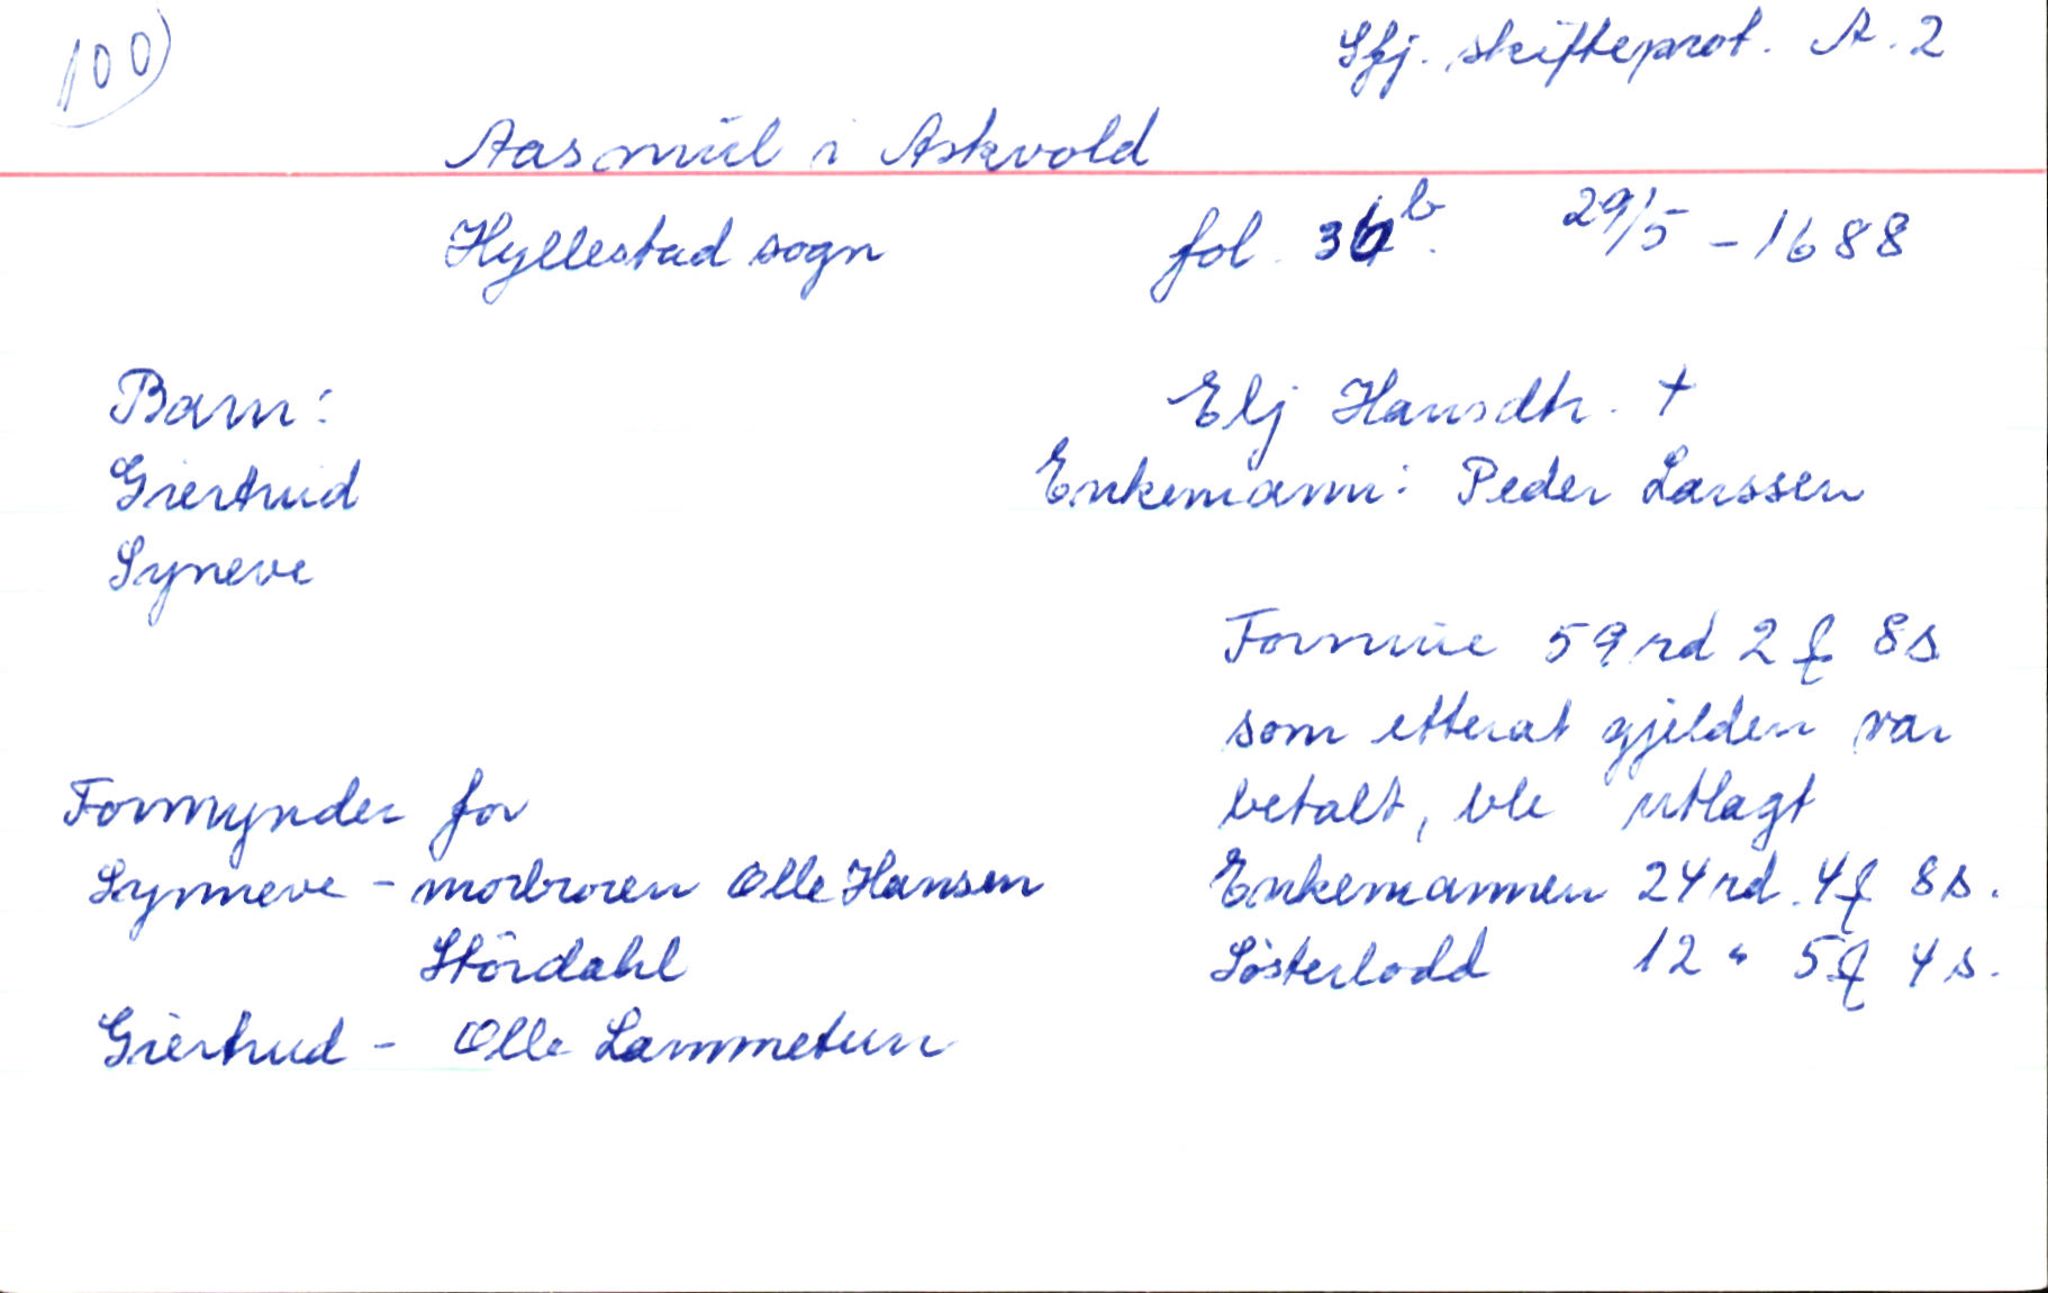 100)
Sfj. skifteprot. A. 2
Aasmül i Askvold
Hyllestad sogn fol. 36b. 29/5 - 1688
Barn:
Giertruid
Syneve
Elj Hansdtr. +
Enkemann: Peder Larssen
Formue 59 rd 2 f 8 s
som etterat gjelden var
betalt, ble utlagt
Enkemannen 24 rd. 4 f 8 s.
Søsterlodd 12 " 5 f 4 s.
Formynder for
Synneve - morbroren Olle Hansen
Stördahl
Giertrud - Olle Lammetun